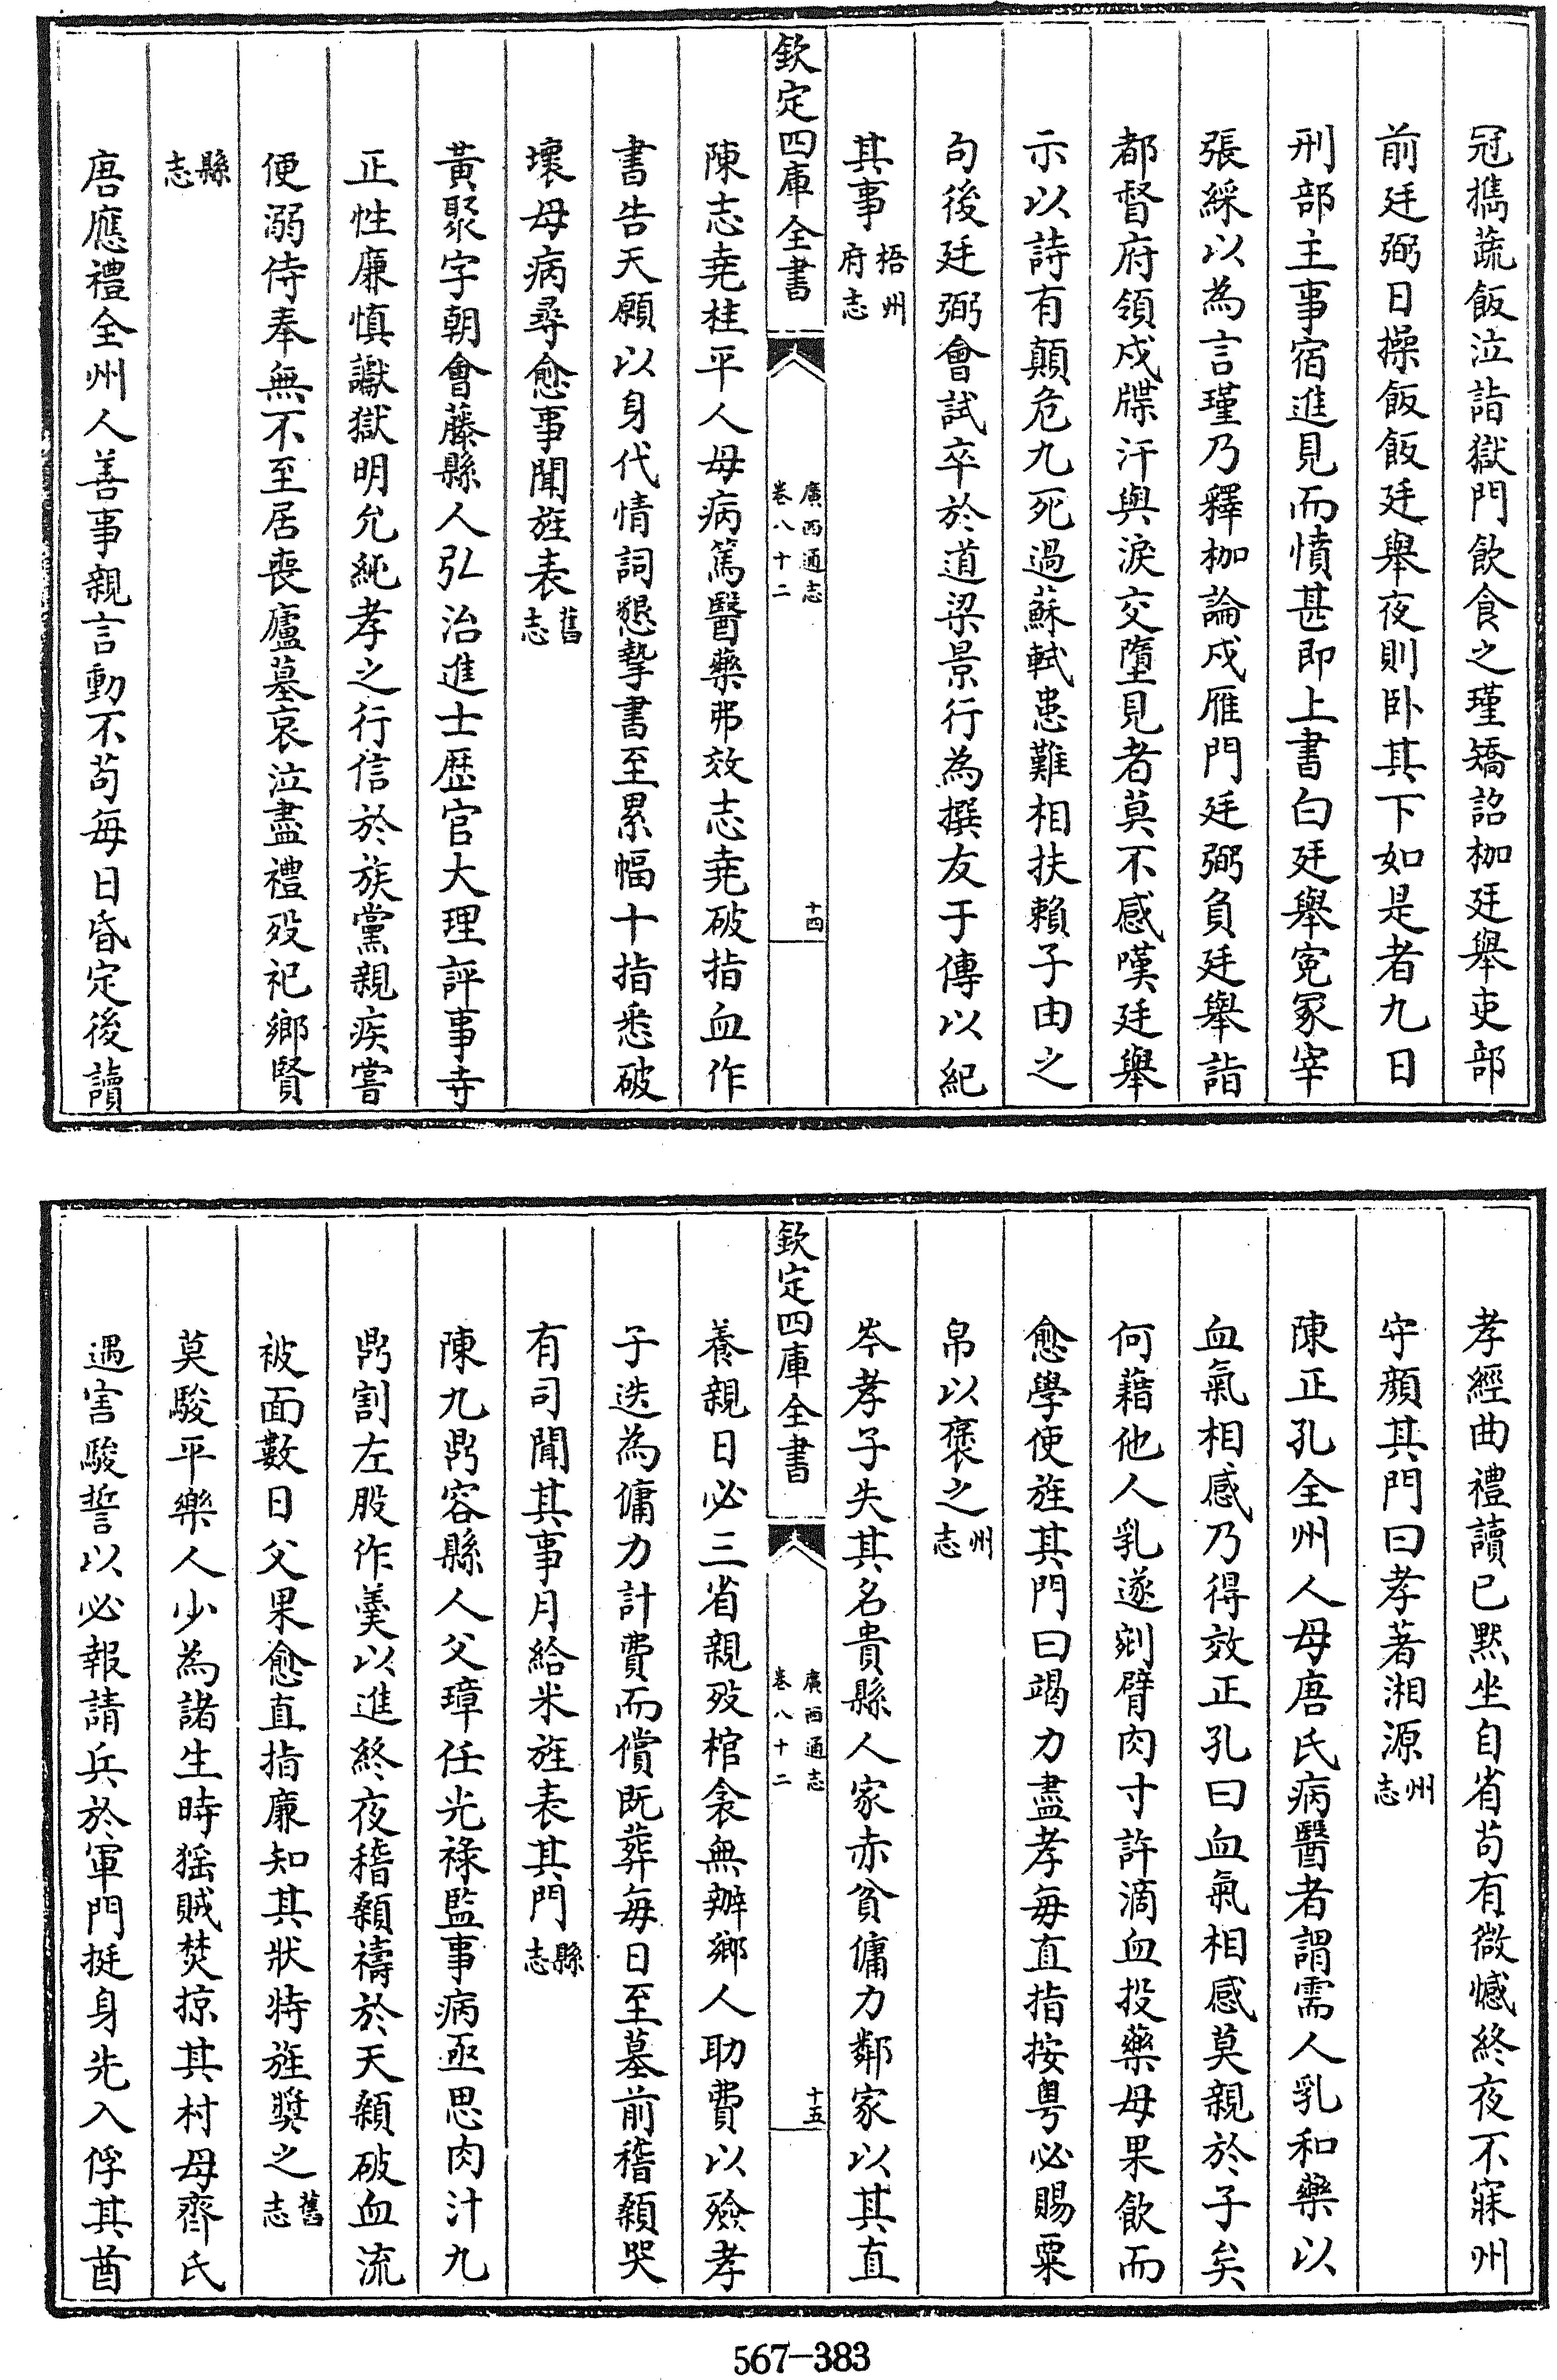 冠攜蔬飯泣詣獄門飲食之瑾矯詔枷廷舉吏部
前廷弼日操飯飯廷舉夜則卧其下如是者九日
刑部主事宿進見而憤甚即上書白廷舉寃冢宰
張綵以為言瑾乃釋枷論戍雁門廷弼負廷舉詣
都督府領戍牒汗與淚交墮見者莫不感嘆廷舉
示以詩有顛危九死過蘇軾患難相扶賴子由之
句後廷弼會試卒於道梁景行為撰友于傳以紀
其事梧州府志
欽定四庫全書
廣西通志
卷八十二
十四
陳志堯桂平人母病篤醫藥弗效志堯破指血作
書告天願以身代情詞懇摯書至累幅十指悉破
壞母病尋愈事聞旌表舊志
黃聚字朝會藤縣人弘治進士歴官大理評事寺
正性廉慎讞獄明允純孝之行信於族黨親疾嘗
便溺侍奉無不至居喪廬墓哀泣盡禮歿祀鄉賢
縣志
唐應禮全州人善事親言動不苟每日昏定後讀
孝經曲禮讀已默坐自省苟有微憾終夜不寐州
守顏其門曰孝著湘源州志
陳正孔全州人母唐氏病醫者謂需人乳和藥以
血氣相感乃得效正孔曰血氣相感莫親於子矣
何藉他人乳遂剜臂肉寸許滴血投藥母果飲而
愈學使旌其門曰竭力盡孝每直指按粵必賜粟
帛以褒之州志
岑孝子失其名貴縣人家赤貧傭力鄰家以其直
欽定四庫全書
廣西通志
卷八十二
十五
養親日必三省親歿棺衾無辦鄉人助費以殮孝
子迭為傭力計費而償既葬每日至墓前稽顙哭
有司聞其事月給米旌表其門縣志
陳九鼎容縣人父璋任光祿監事病亟思肉汁九
鼎割左股作羹以進終夜稽顙禱於天顙破血流
被面數日父果愈直指廉知其狀特旌奬之舊志
莫駿平樂人少為諸生時猺賊焚掠其村母齊氏
遇害駿誓以必報請兵於軍門挺身先入俘其酋
567-383